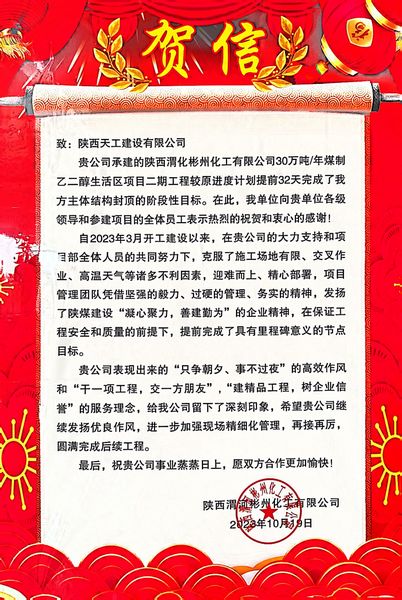 贺信
致：陕西天工建设有限公司
贵公司承建的陕西渭化彬州化工有限公司30万吨/年煤制
乙二醇生活区项目二期工程较原进度计划提前32天完成了我
方主体结构封顶的阶段性目标。在此，我单位向贵单位各级
领导和参建项目的全体员工表示热烈的祝贺和衷心的感谢！
自2023年3月开工建设以来，在贵公司的大力支持和项
目部全体人员的共同努力下，克服了施工场地有限、交叉作
业、高温天气等诸多不利因素，迎难而上、精心部署，项目
管理团队凭借坚强的毅力、过硬的管理、务实的精神，发扬
了陕煤建设“凝心聚力，善建勤为”的企业精神，在保证工
程安全和质量的前提下，提前完成了具有里程碑意义的节点
目标。
贵公司表现出来的“只争朝夕、事不过夜”的高效作风
和“干一项工程，交一方朋友”，“建精品工程，树企业信
誉”的服务理念，给我公司留下了深刻印象，希望贵公司继
续发扬优良作风，进一步加强现场精细化管理，再接再厉，
圆满完成后续工程。
最后，祝贵公司事业蒸蒸日上，愿双方合作更加愉快！
陕西渭河彬州化工有限公司
2023年10月19日